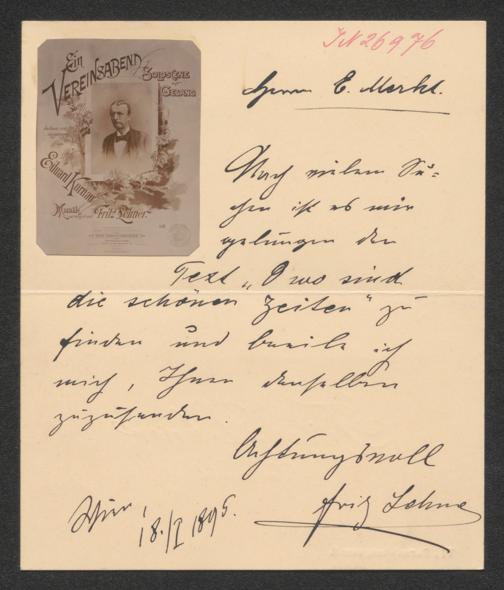 IN 26976
Ein
VEREINSABEND
SOLOSCENE
GESANG
Eduard
Musik
Fritz Lehner
Herrn E. Merkt.
Nach vielem Su-
chen ist es mir
gelungen den
Text „O wo sind
die schönen Zeiten" zu
finden und beeile ich
mich, Ihnen denselben
zuzusenden.
Achtungsvoll
Fritz Lehner
Wien,
18./I 1895.